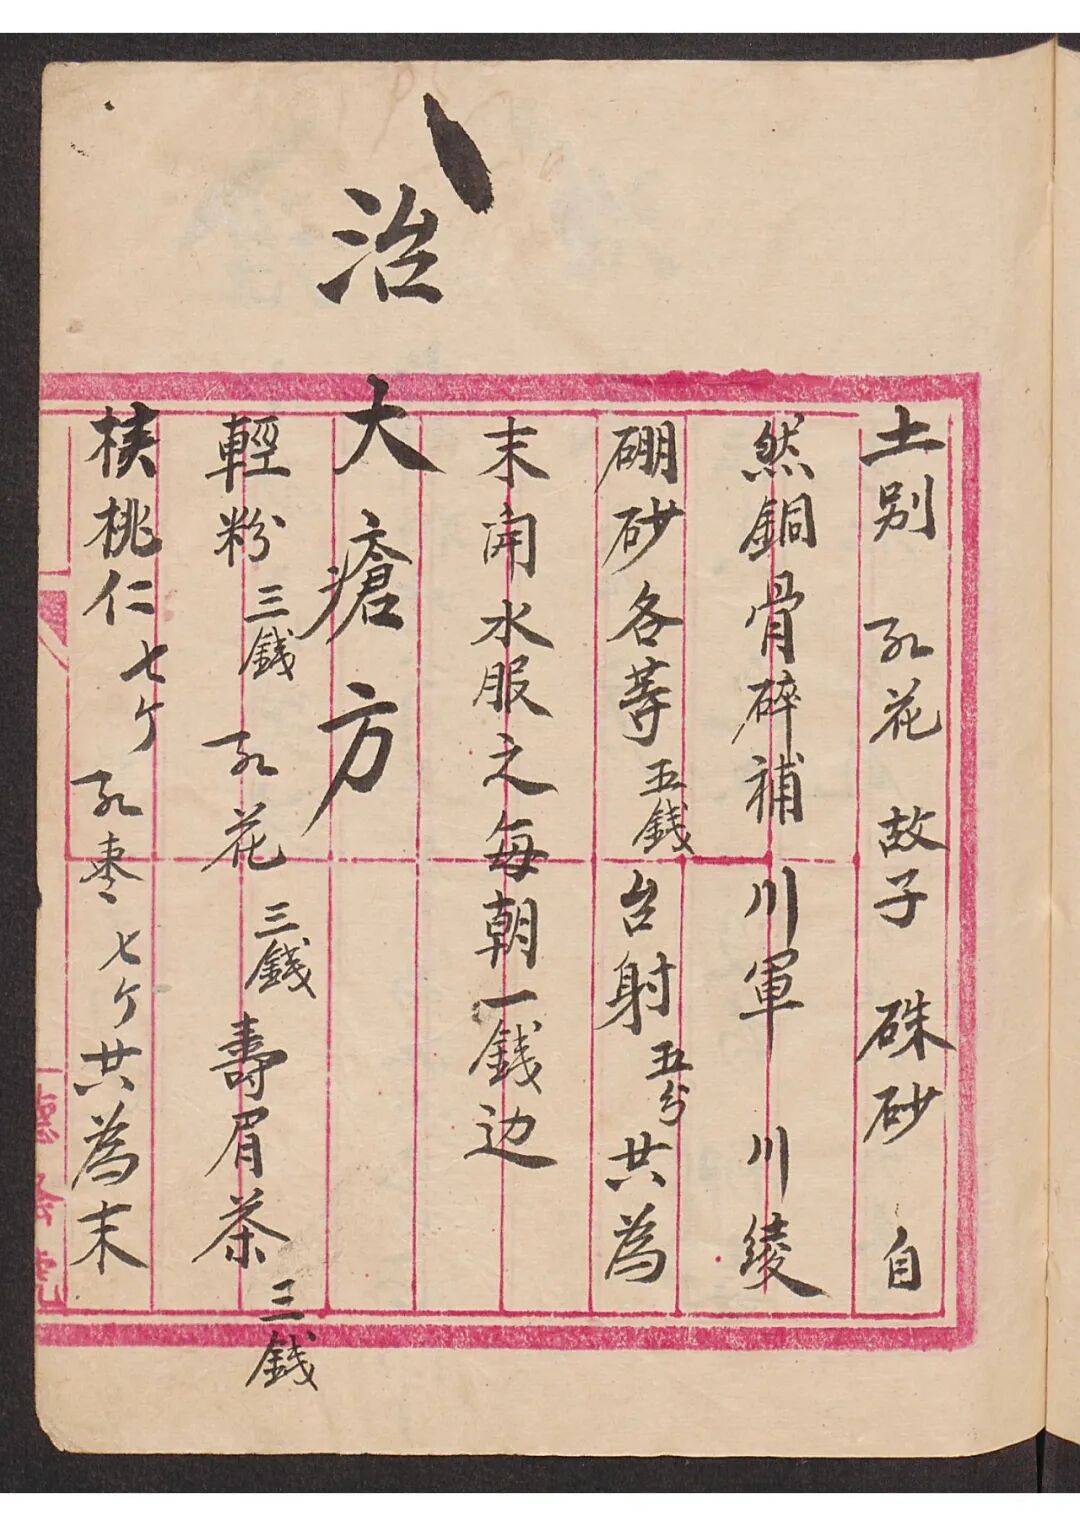 土別 紅花 故子 硃砂 自
然銅骨碎補 川軍 川綾
硼砂各等五錢台射五分共為
末開水服之每朝一錢边
治
大瘡方
輕粉三錢紅花三錢壽眉茶三錢
核桃仁七个紅棗七个共為末